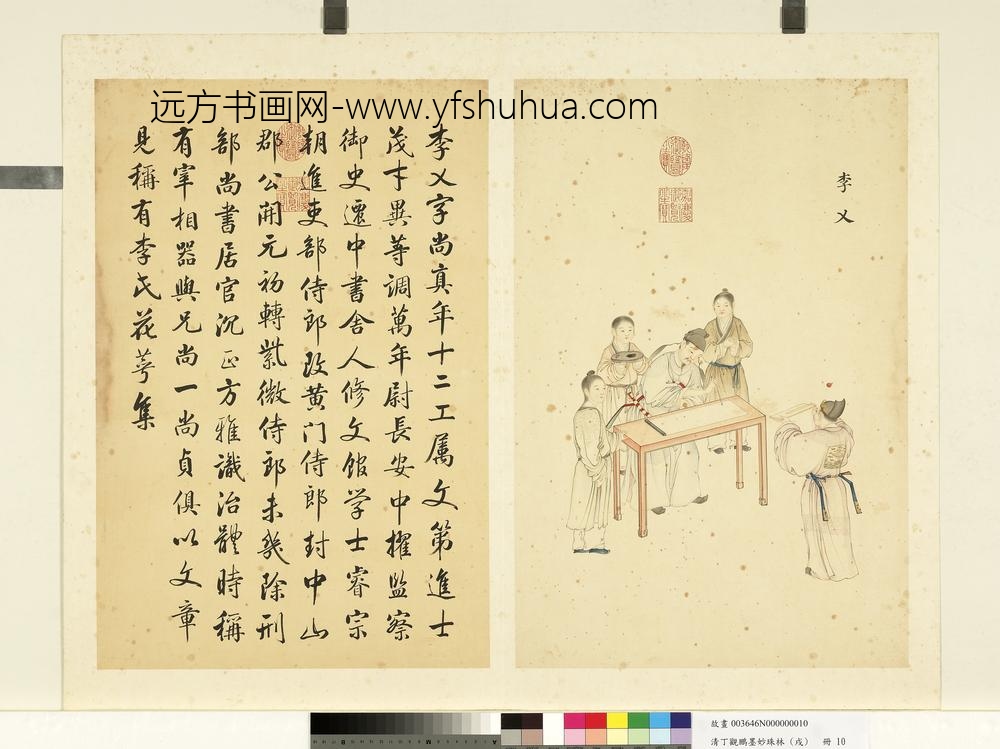 远方书画网-www.yfshuhua.com
李乂
李乂字尚真年十二工属文第進士
茂才異等調萬年尉長安中擢監察
御史遷中書舍人修文館学士睿宗
朝進吏部侍郎改黄门侍郎封中山
郡公開元初轉紫微侍郎未幾除刑
部尚書居官沉正方雅識治體時稱
有宰相器與兄尚一尚貞俱以文章
見稱有李氏花萼集
故畫 003646N000000010
清丁觀鵬墨妙珠林（戌） 冊 10